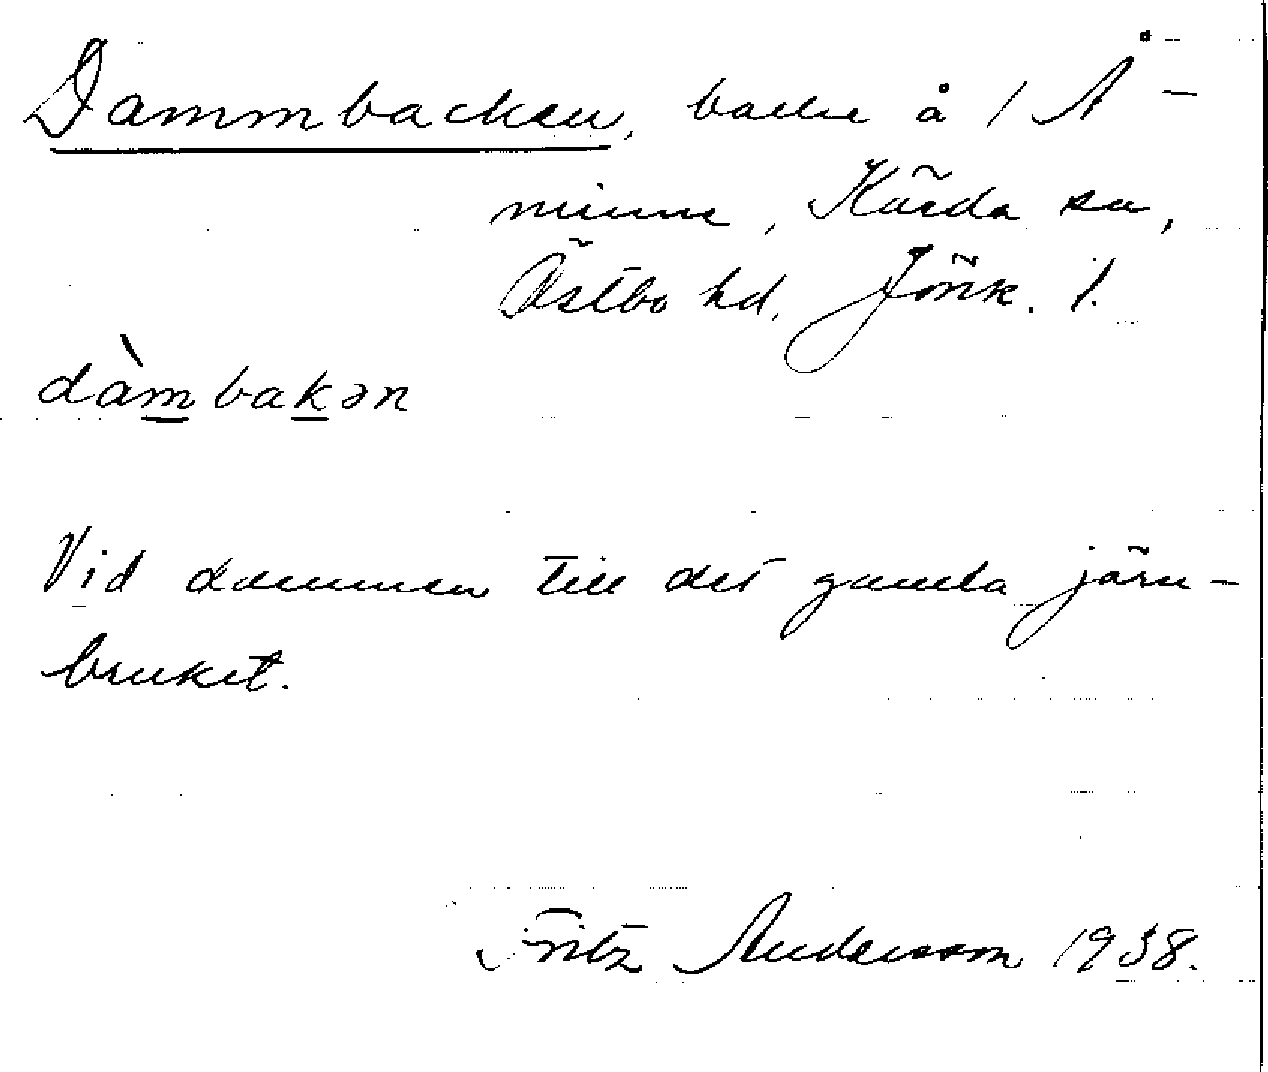 Dammbacken, backe å 1 Å-
minne, Kärda sn,
Östbo hd, Jönk. l.
dàmbakən
Vid dammen till det gamla järn-
bruket.
Fritz Andersson 1938.